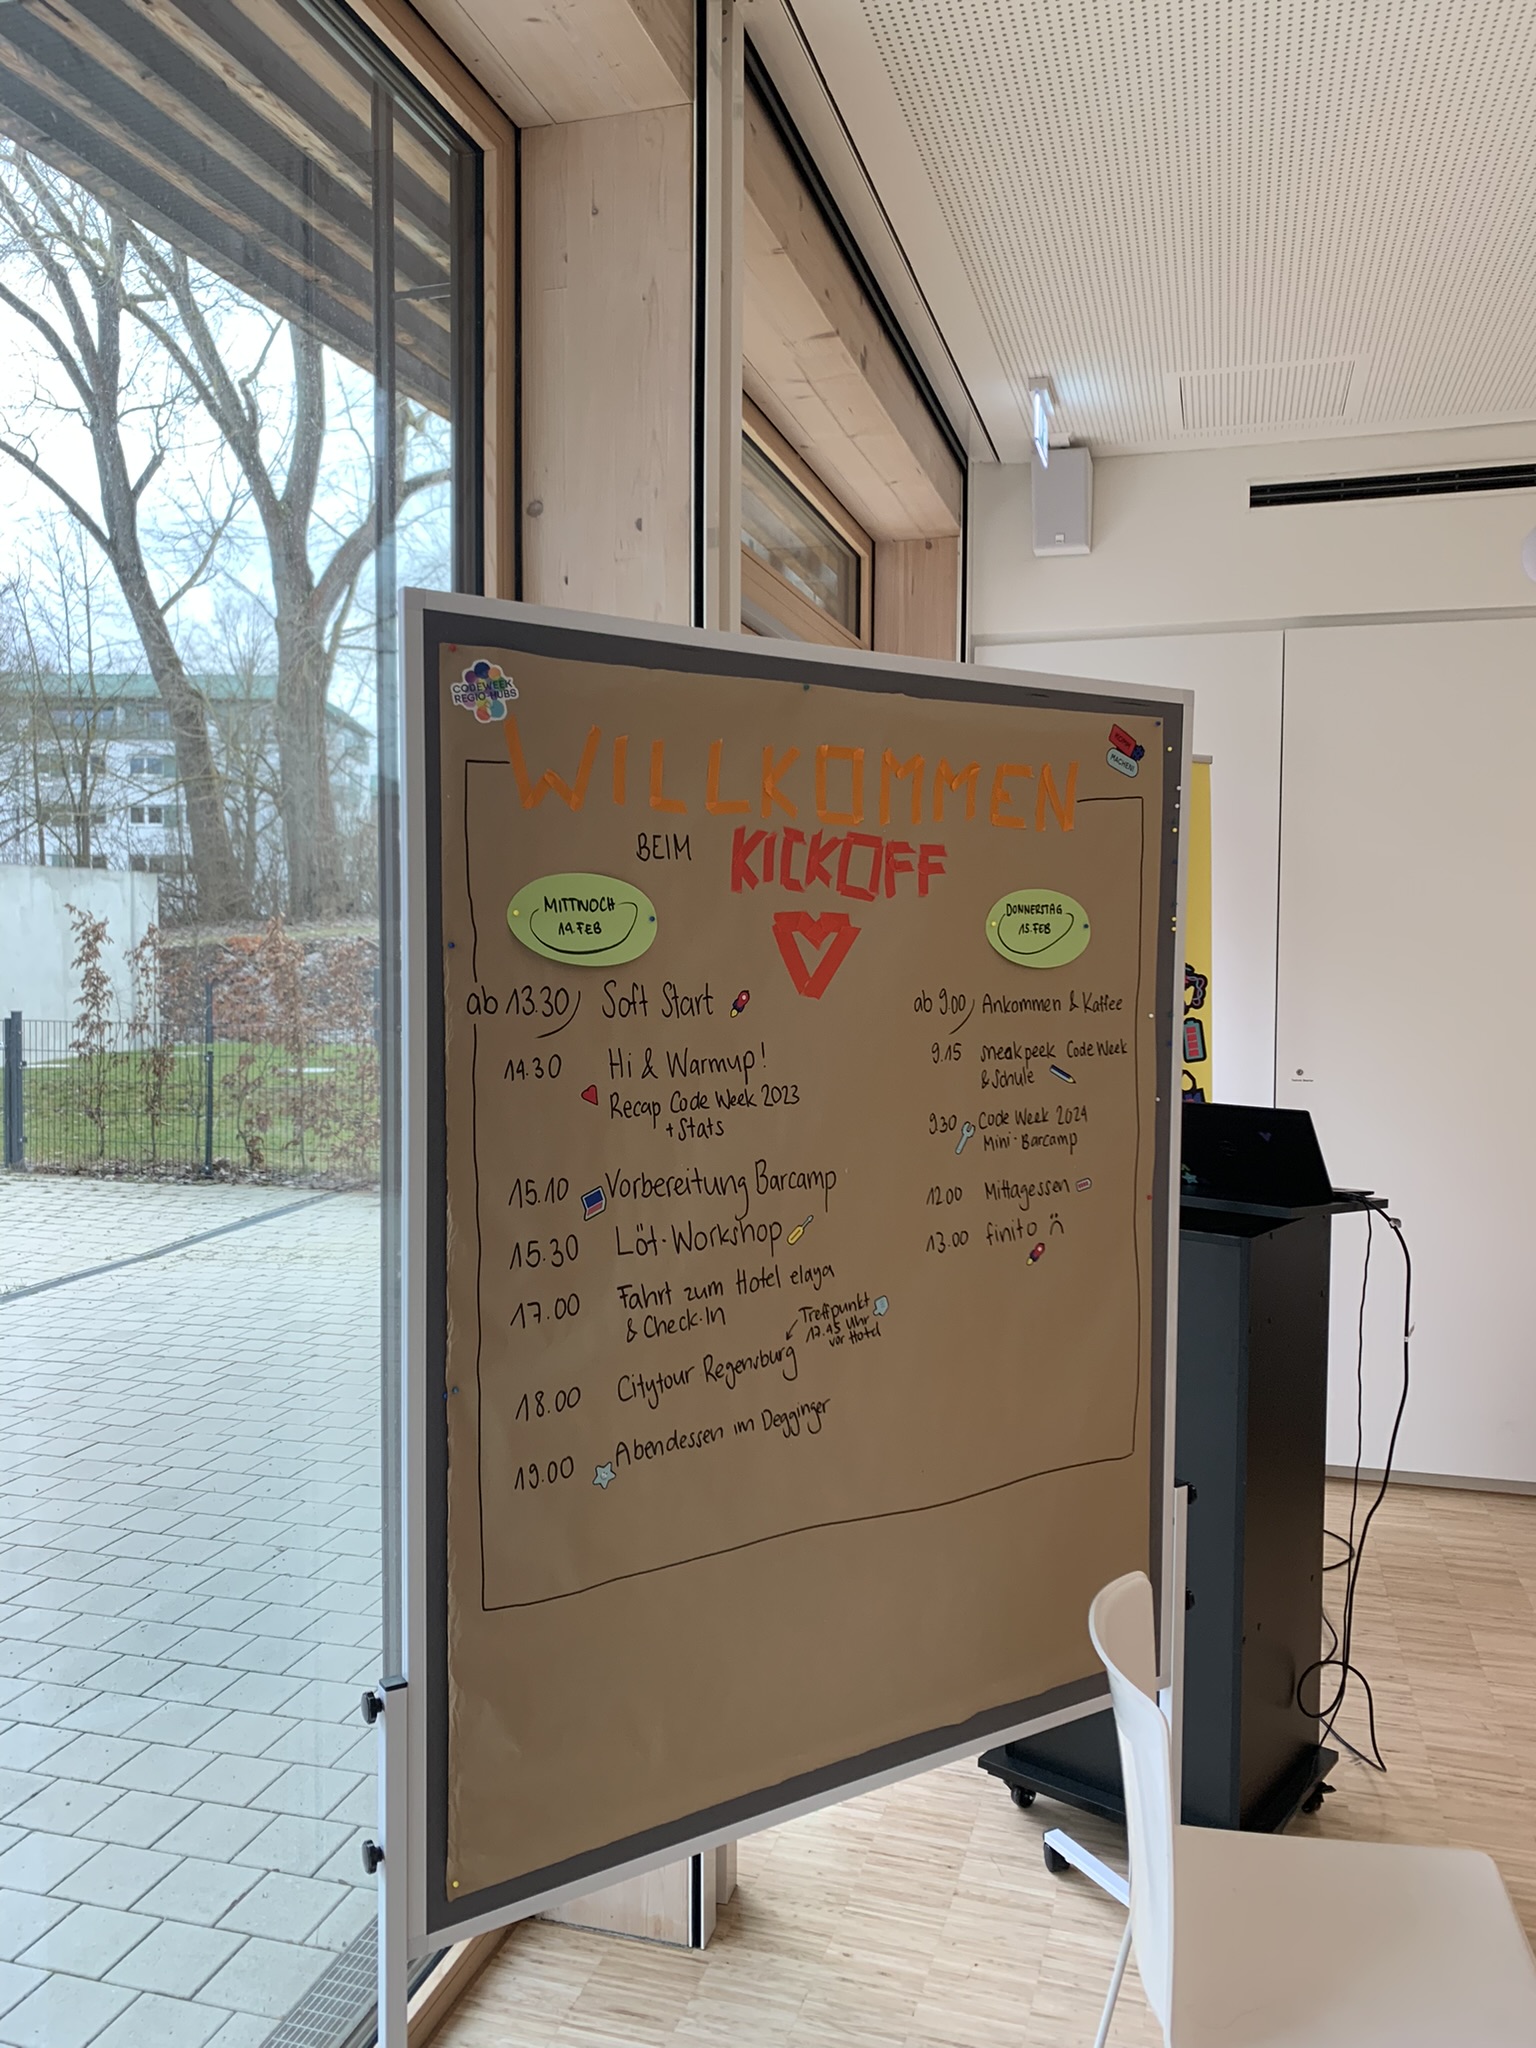 CODEWEEK
REGIO-HUBS
WILLKOMMEN
MACHEN!
BEIM KICKOFF
MITTWOCH
14.FEB
ab 13.30 Soft Start
14.30 Hi & Warmup!
Recap Code Week 2023
+ Stats
15.10 Vorbereitung Barcamp
15.30 Löt-Workshop
17.00 Fahrt zum Hotel elaya
& Check-In
Treffpunkt
17.45 Uhr
vor Hotel
18.00 Citytour Regensburg
19.00 Abendessen im Degginger
DONNERSTAG
15.FEB
ab 9.00 Ankommen & Kaffee
9.15 sneakpeek Code Week
& Schule
9.30 Code Week 2024
Mini-Barcamp
12.00 Mittagessen
13.00 finito